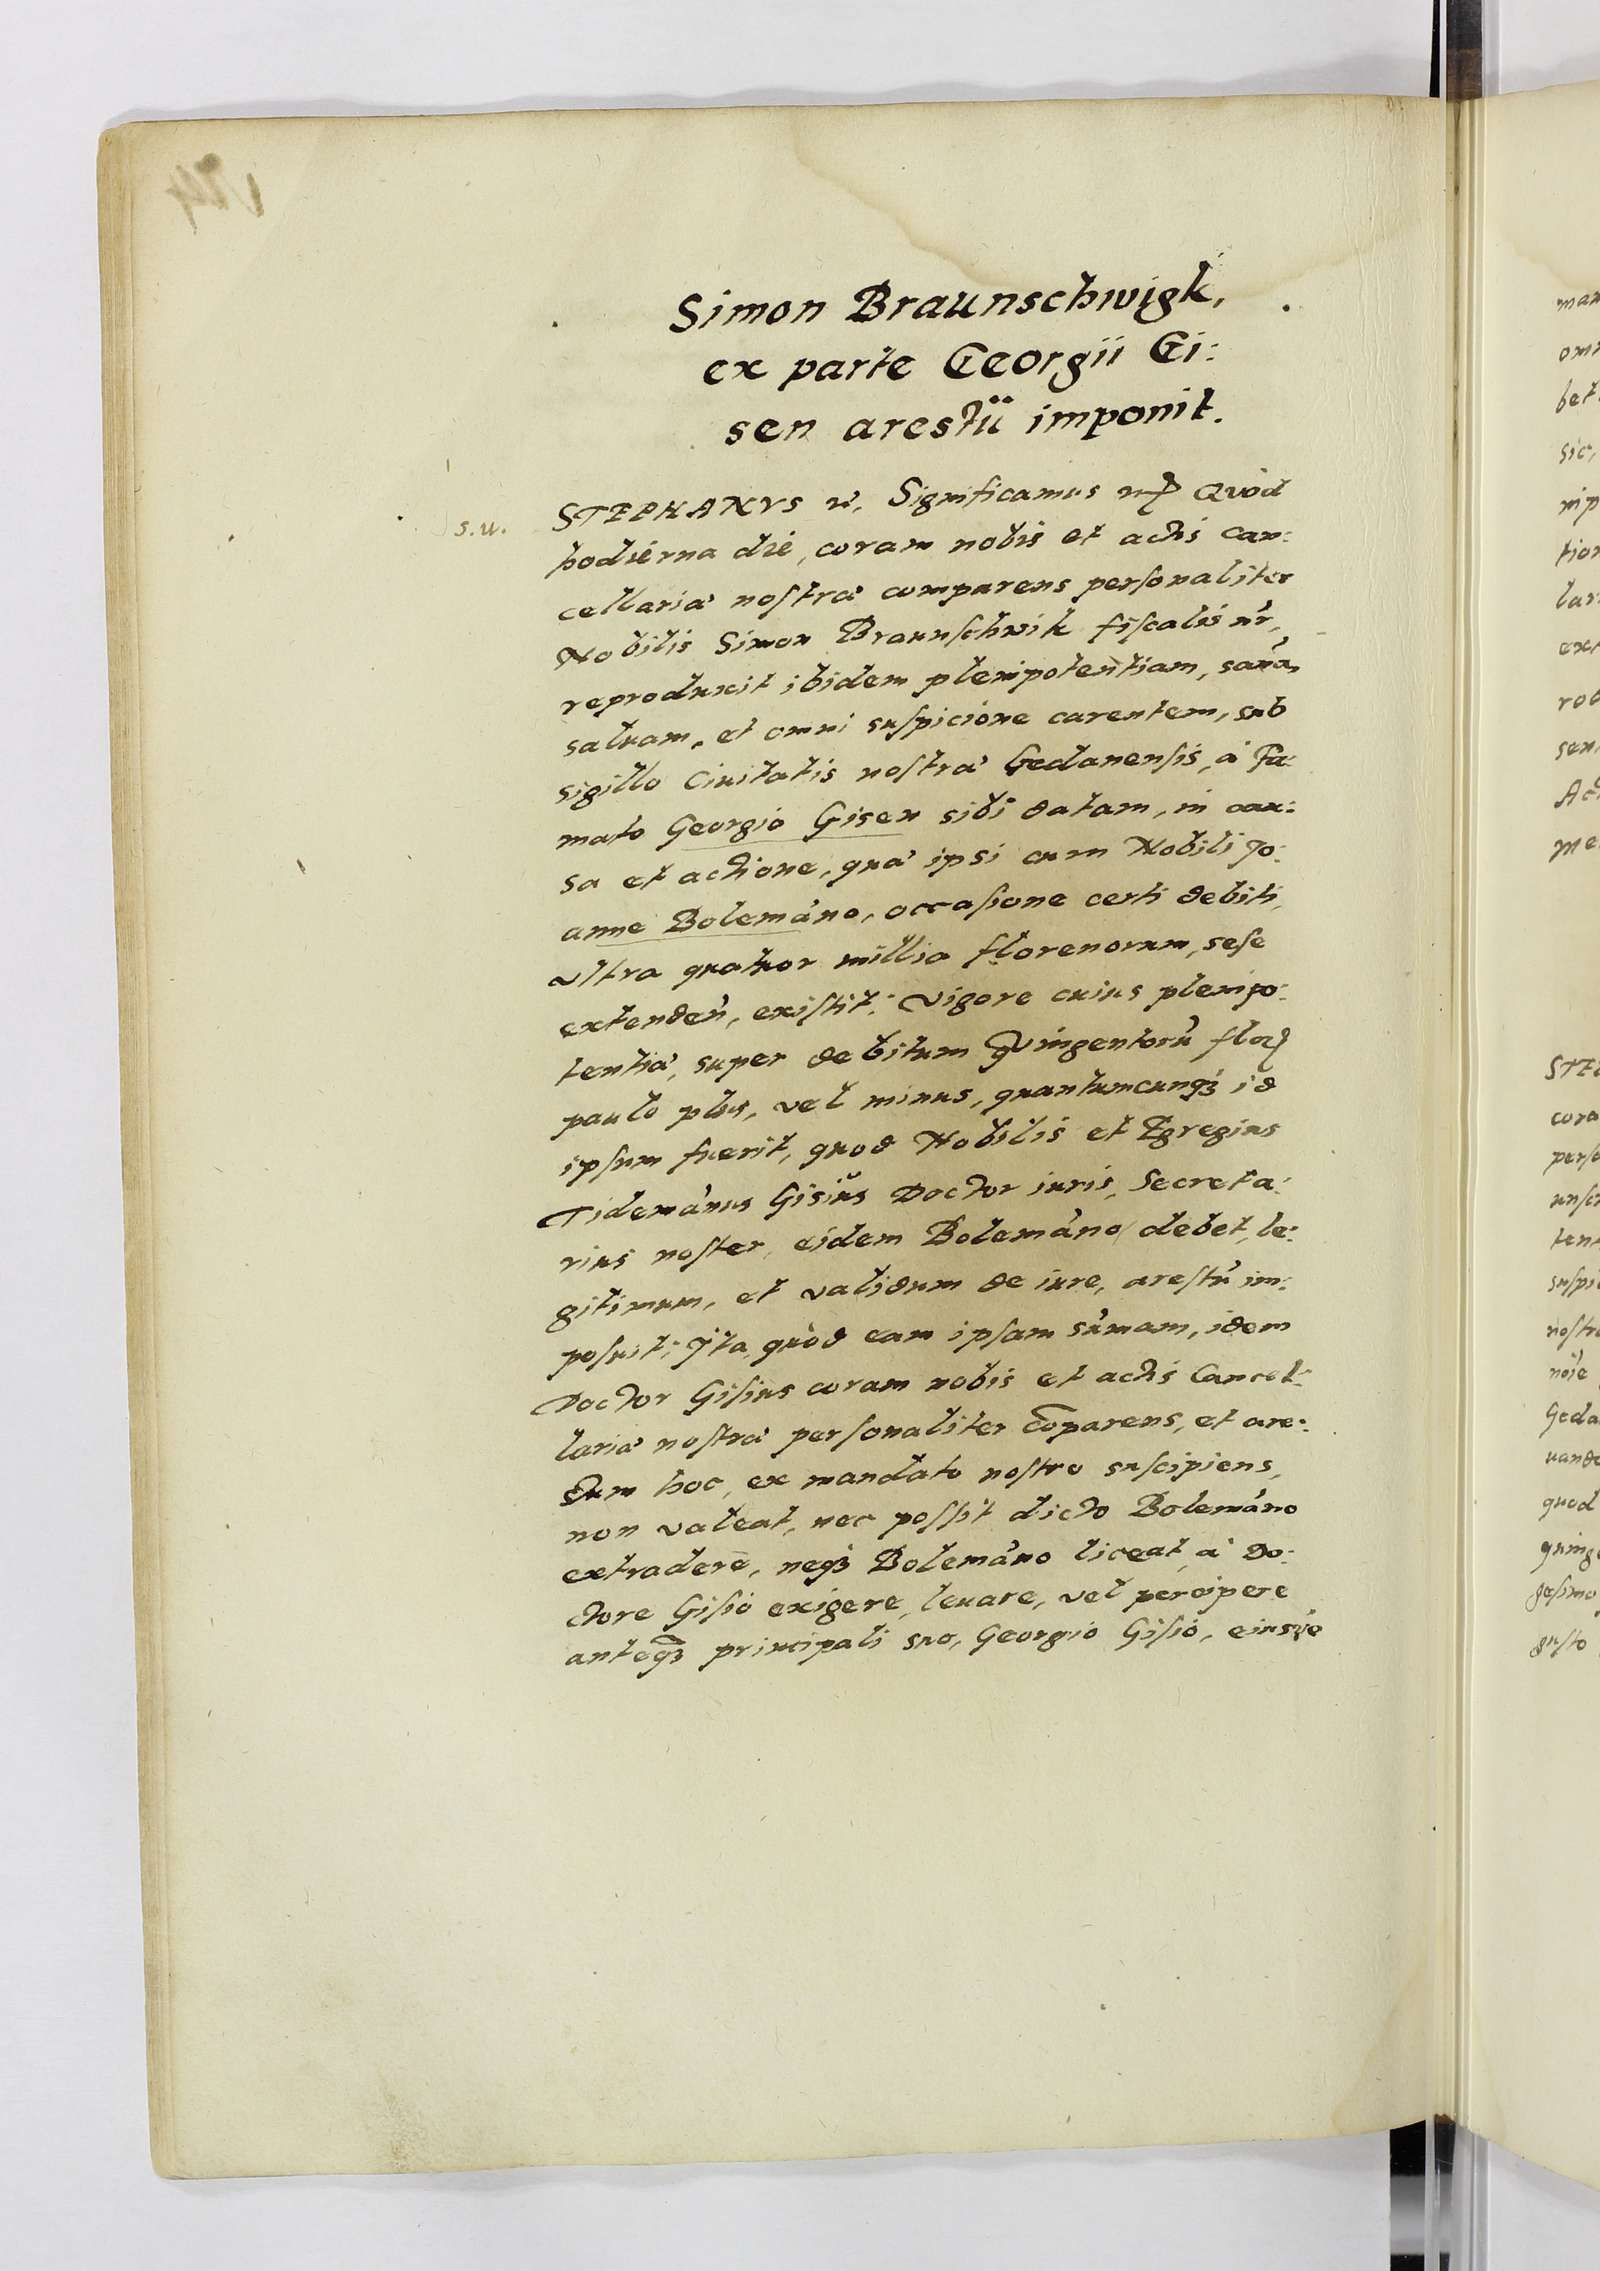 Simon Braunschwigk,
ex parte Georgii Gi:
sen arestũ imponit.
s.u.
STEPHANVS &c. Significamus Quòd
hodierna die, coram nobis et actis Can:
cellariæ nostræ comparens personaliter
Nobilis Simon Braunschwik fiscalis nr̃,
reproduxit ibidem plenipotentiam, sanã,
saluam, et omni suspicione carentem, sub
sigillo Ciuitatis nostræ Gedanensis, à Fa:
mato Georgio Gisen sibi datam, in cau:
sa et actione, quæ ipsi cum Nobili Jo:
anne Bolemãno, occasione certi debiti,
vltra quatuor millia florenorum, sese
extendeñ, existit: Vigore cuius plenipo:
tentiæ, super debitum Quingentorũ flor
paulo plus, vel minus, quantumcunq3 id
ipsum fuerit, quod Nobilis et Egregius
Tidemãnus Gisius Doctor iuris, Secreta:
rius noster, eidem Bolemãno debet, le:
gitimum, et validum de iure, arestũ im:
posuit: Jta, quòd eam ipsam sũmam, idem
Doctor Gisius coram nobis et actis Cancel:
lariæ nostræ personaliter cõparens, et are:
stum hoc, ex mandato nostro suscipiens,
non valeat, nec possit dicto Bolemãno
extradere, neq3 Bolemãno liceat, à Do:
ctore Gisio exigere, leuare, vel percipere
anteq̃3 principali suo, Georgio Gisio, eiusue